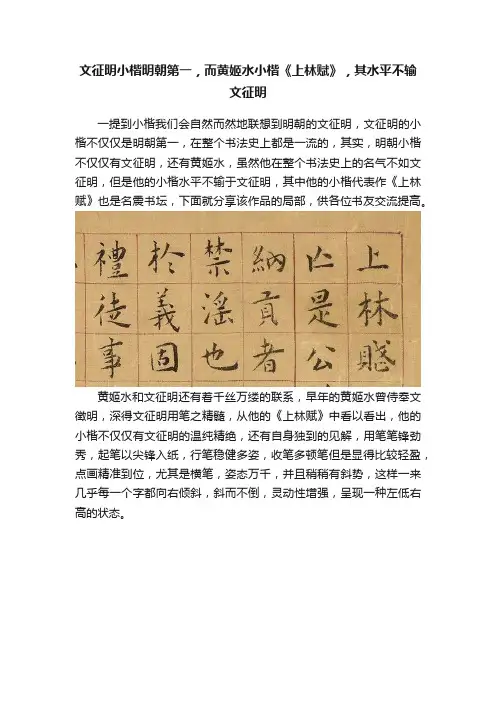 文征明小楷明朝第一，而黄姬水小楷《上林赋》，其水平不输
文征明
一提到小楷我们会自然而然地联想到明朝的文征明，文征明的小
楷不仅仅是明朝第一，在整个书法史上都是一流的，其实，明朝小楷
不仅仅有文征明，还有黄姬水，虽然他在整个书法史上的名气不如文
征明，但是他的小楷水平不输于文征明，其中他的小楷代表作《上林
赋》也是名震书坛，下面就分享该作品的局部，供各位书友交流提高。
上林賦
亾是公
納貢者
禁滛也
於義固
禮徒事
黄姬水和文征明还有着千丝万缕的联系，早年的黄姬水曾侍奉文
徵明，深得文征明用笔之精髓，从他的《上林赋》中看以看出，他的
小楷不仅仅有文征明的温纯精绝，还有自身独到的见解，用笔笔锋劲
秀，起笔以尖锋入纸，行笔稳健多姿，收笔多顿笔但是显得比较轻盈，
点画精准到位，尤其是横笔，姿态万千，并且稍稍有斜势，这样一来
几乎每一个字都向右倾斜，斜而不倒，灵动性增强，呈现一种左低右
高的状态。